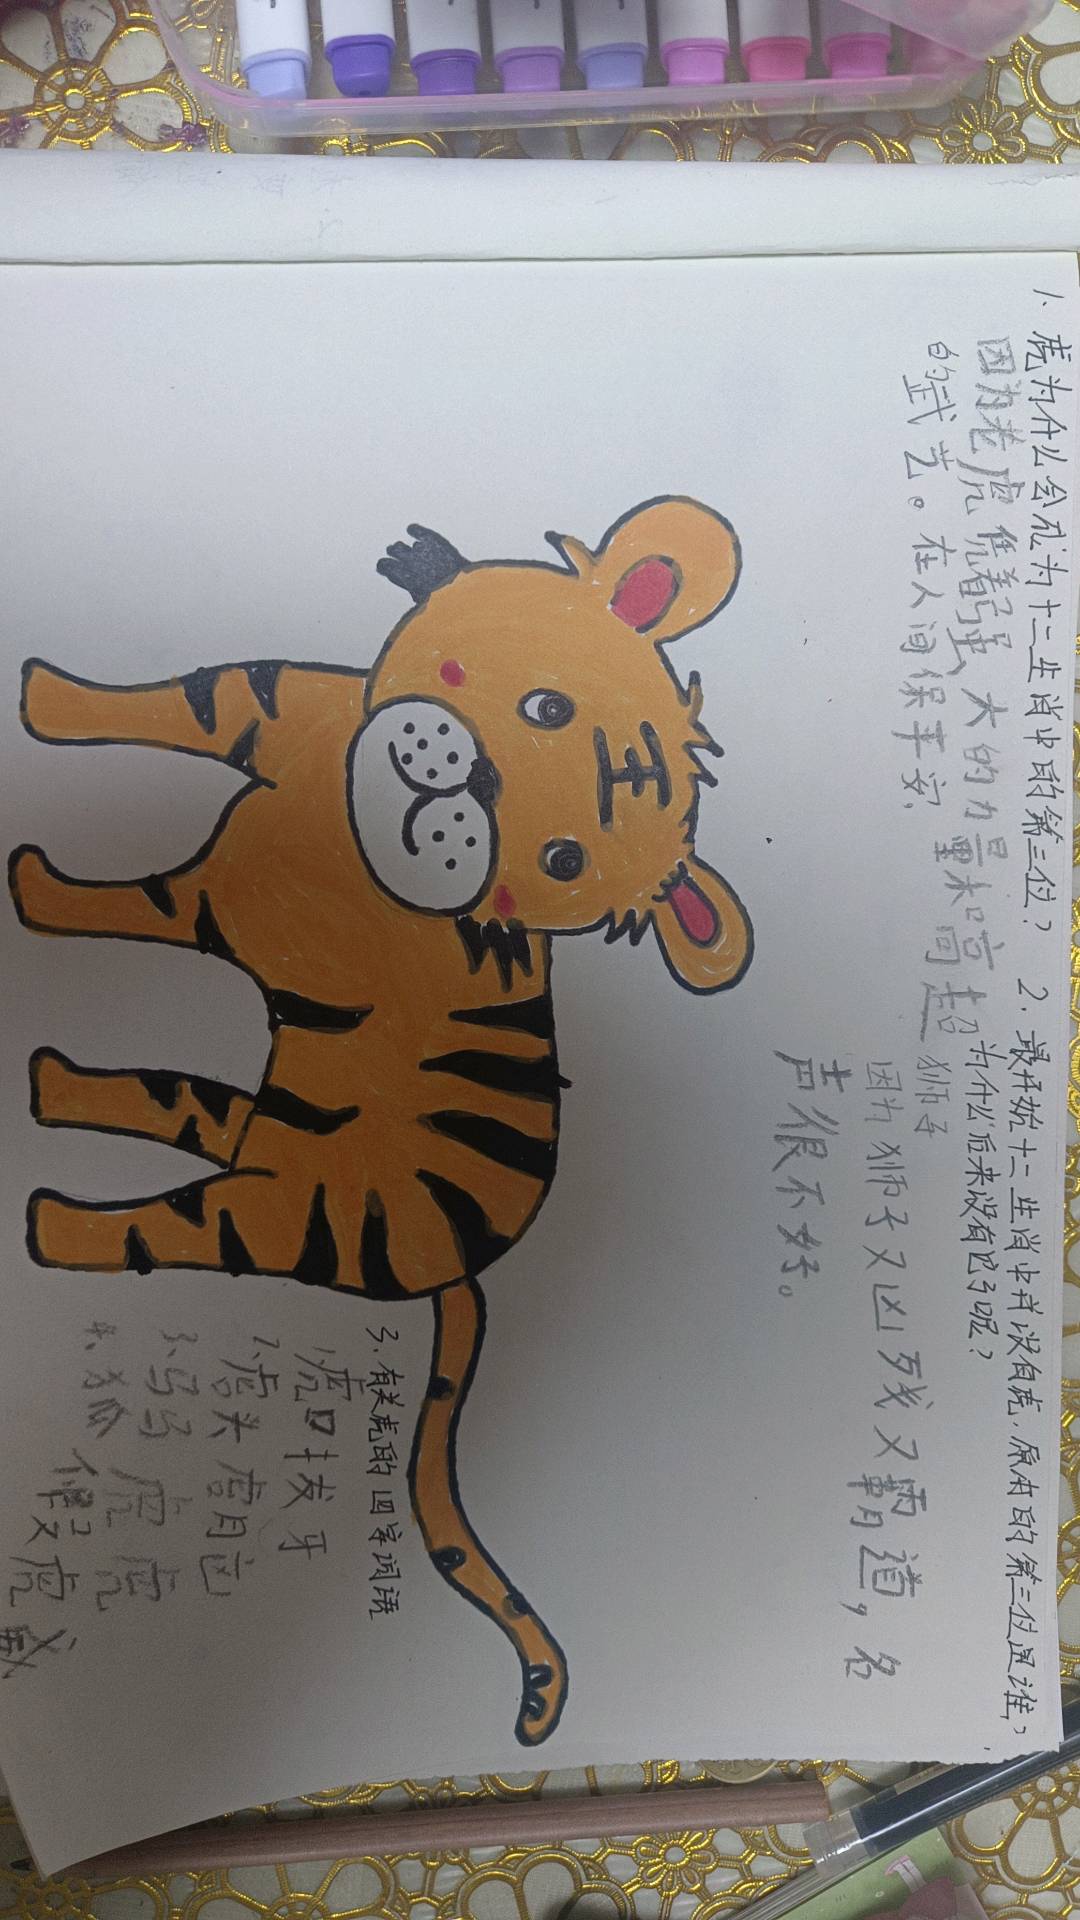 1、虎为什么会成为十二生肖中的第三位?
因为老虎凭着强大的力量和高超
的武艺。在人间保平安,
2.最开始十二生肖中并没有虎,原本的第三位是谁,
为什么后来没有它了呢?
狮子
因为狮子又凶残又霸道,名
声很不好。
王
3、有关虎的四字词语
1、虎口拔牙
2、虎头虎
3、马马虎虎
4、狐假虎威